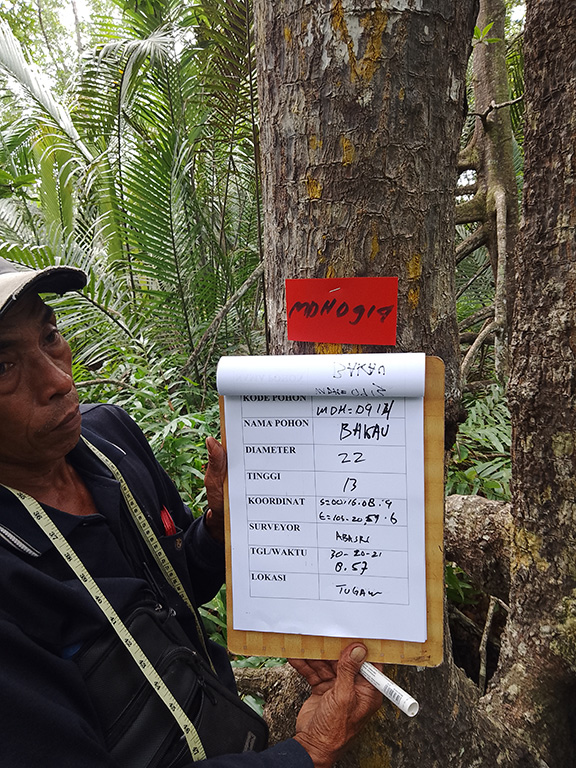 MDH0914
KODE POHON MDH=0914
NAMA POHON BAKAU
DIAMETER 22
TINGGI 13
KOORDINAT S=00.16.08.9
E=103.20.57.6
SURVEYOR
TGL/WAKTU 30-20-21
0.57
LOKASI TUGAW